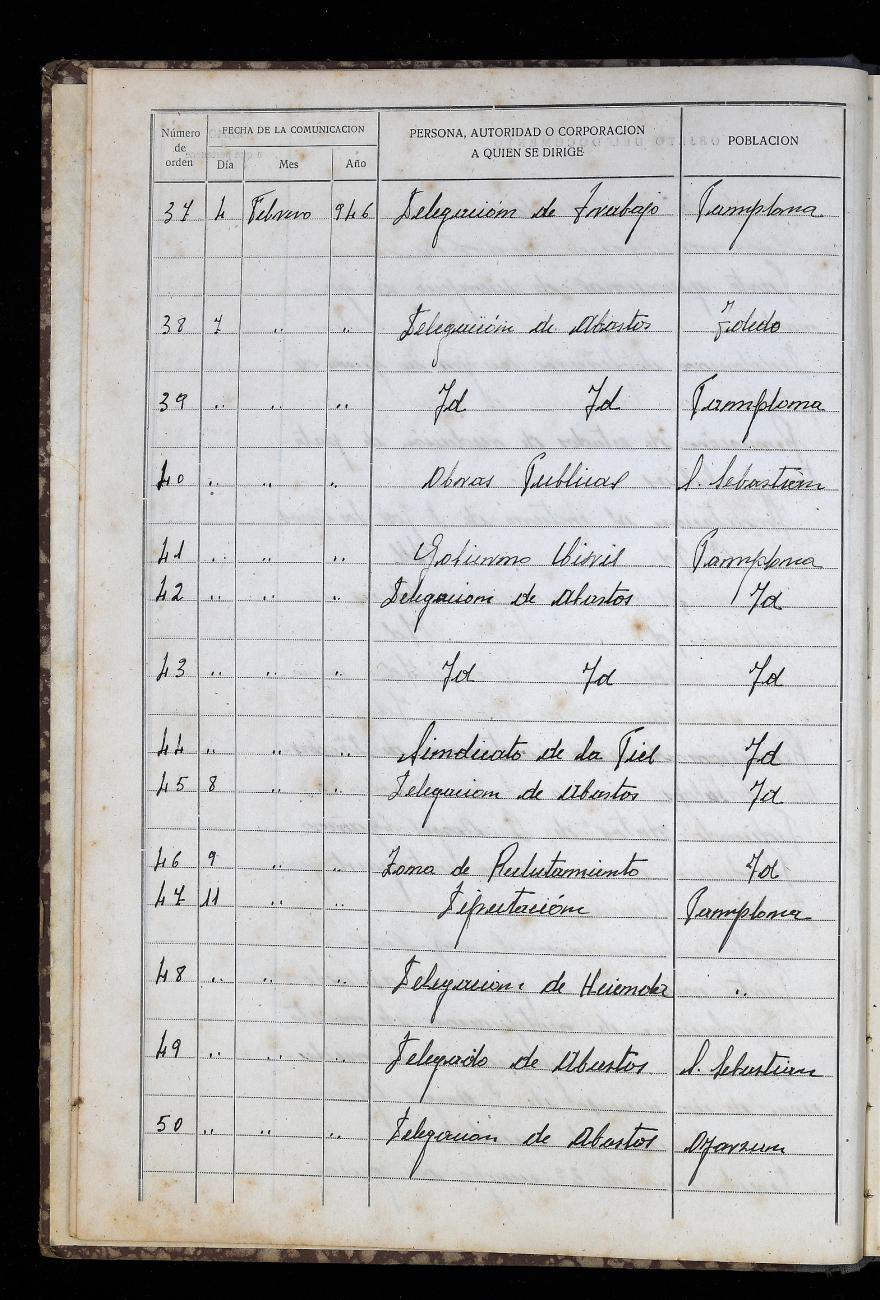 Número de orden FECHA DE LA COMUNICACION PERSONA, AUTORIDAD O CORPORACION A QUIEN SE DIRIGE POBLACION
Día Mes Año
37 4 Febrero 946 Delegación de Trabajo Pamplona
38 7 " " Delegación de Abastos Toledo
39 " " " Id Id Pamplona
40 " " " Obras Publicas S. Sebastián
41 " " " Gobierno Civil Pamplona
42 " " " Delegacion de Abastos Id
43 " " " Id Id Id
44 " " " Sindicato de la Piel Id
45 8 " " Delegacion de Abastos Id
46 9 " " Zona de Reclutamiento Id
47 11 " " Diputación Pamplona
48 " " " Delegacion de Hacienda "
49 " " " Delegado de Abastos S. Sebastian
50 " " " Delegacion de Abastos Oyarzun